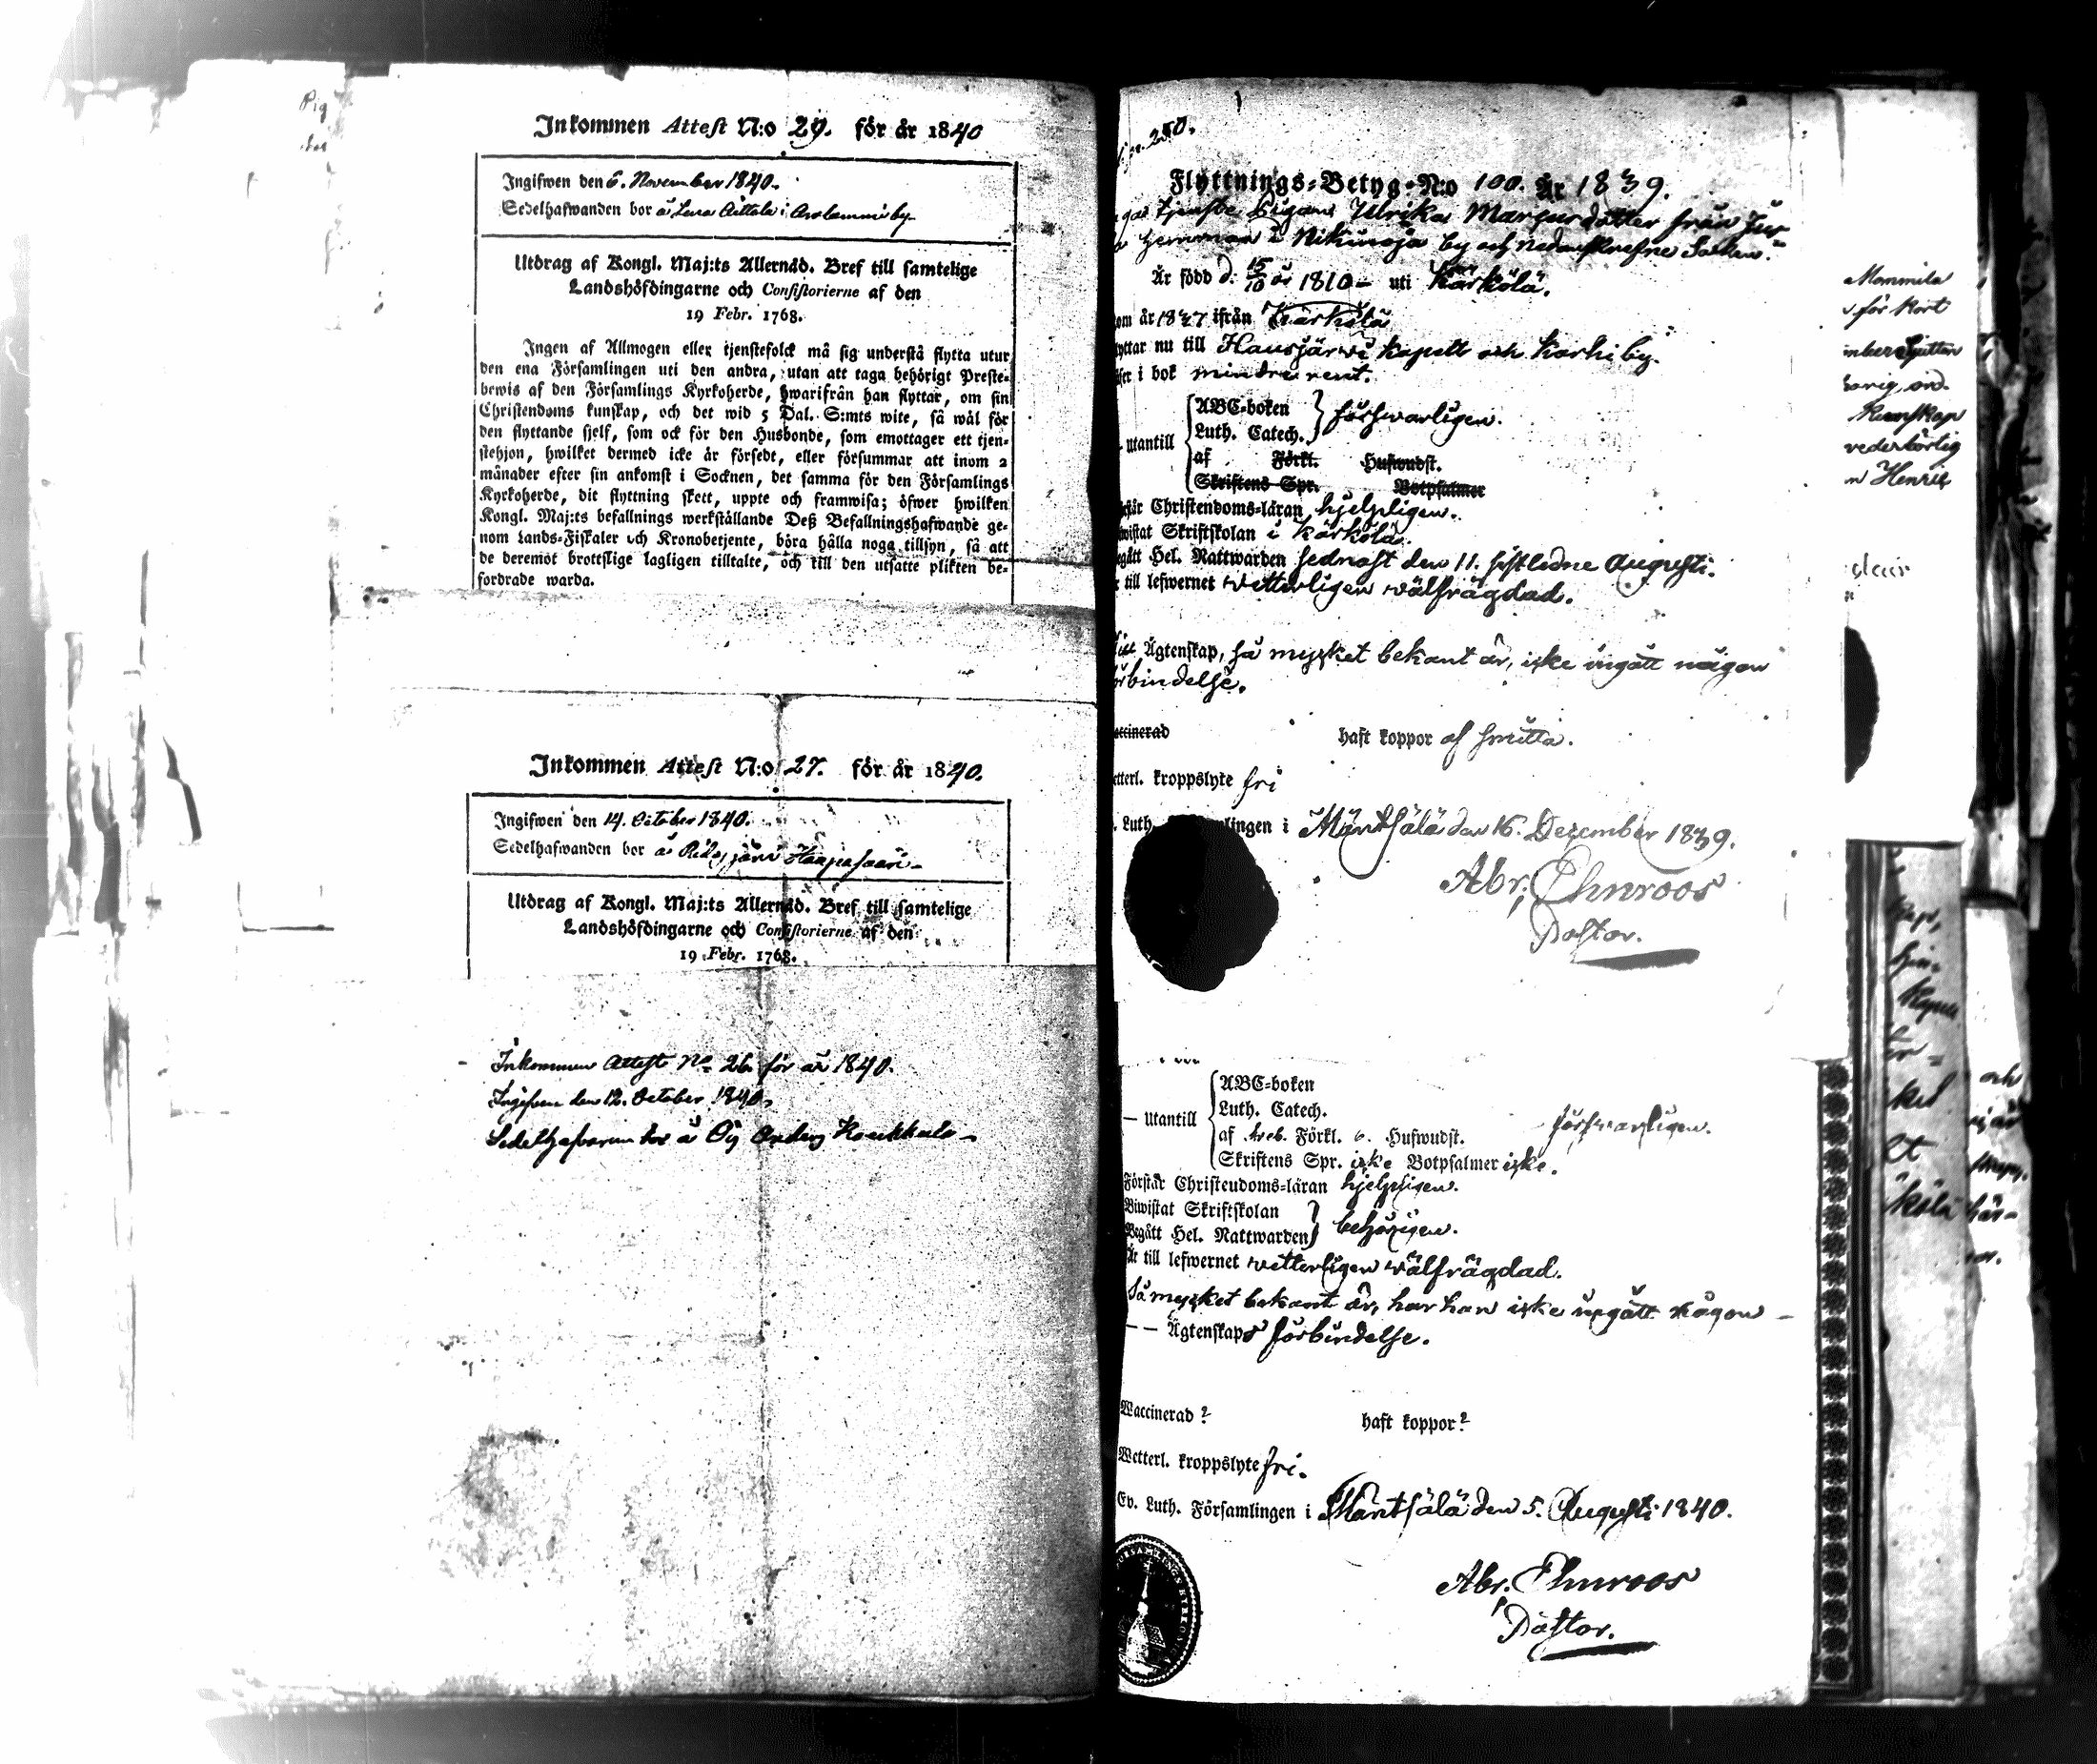 Inkommen Attest N:o 29. för år 1840
Ingifwen den 6. November 1840.
Sedelhafwanden bor å Lena Aittala i by
Utdrag af Kongl. Maj:ts Allernåd. Bref till samtelige
Landshöfdingarne och Consistorierne af den
19 Febr. 1768.
Ingen af Allmogen eller tjenstefolck må sig understå flytta utur
den ena Församlingen uti den andra, utan att taga behörigt Preste-
bewis af den Församlings Kyrkoherde, hwarifrån han flyttar, om sin
Christendoms kunskap, och det wid 5 Dal. S:mts wite, så wäl för
den flyttande sjelf, som ock för den Husbonde, som emottager ett tjen-
stehjon, hwilket dermed icke är försedt, eller försummar att inom 2
månader efter sin ankomst i Socknen, det samma för den Församlings
Kyrkoherde, dit flyttning skett, uppte och framwisa; öfwer hwilken
Kongl. Maj:ts befallnings werkställande Deß Befallningshafwande ge-
nom Lands-Fiskaler och Kronobetjente, böra hålla noga tillsyn, så att
de deremot brottslige lagligen tilltalte, och till den utsatte plikten be-
fordrade warda.
Inkommen Attest N:o 27. för år 1840.
Ingifwen den 14. October 1840.
Sedelhafwanden bor å Haapasaari
Utdrag af Kongl. Maj:ts Allernåd. Bref till samtelige
Landshöfdingarne och Consistorierne af den
19 Febr. 1768.
Inkommen Attest No 26 för år 1840.
Ingifven den 12. October 1840.
bor å Anders
250.
Flyttnings-Betyg N:o 100. År 1839.
tjenste Pigan Ulrika Marcusdotter från
i Nikinoja by och Socken.
Är född d: 15/10 år 1810 uti Kärkölä.
om år 1827 ifrån Kärkölä
yttar nu till Hausjärvi Kapell och Karhi by.
i bok mindre rent.
utantill ABC-boken
Luth. Catech. försvarligen.
af Förkl. Hufwudst.
Skriftens Spr. Botpsalmer
Christendoms-läran hjelpligen.
wistat Skriftskolan i Kärkölä.
egått Hel. Nattwarden sednast den 11. sistledne Augusti.
till lefwernet vetterligen välfrägdad.
Ägtenskap, så mycket bekant är, icke ingått någon
förbindelse.
accinerad haft koppor af smitta.
etterl. kroppslyte fri
Luth. Församlingen i Mäntsälä den 16. December 1839.
Abr. Ehnroos
Pastor.
ABC-boken
Luth. Catech.
— utantill af Förkl. 6. Hufwudst. försvarligen.
Skriftens Spr. icke Botpsalmer icke.
Förstår Christendoms-läran hjelpligen.
Biwistat Skriftskolan
Begått Hel. Nattwarden behörigen.
Är till lefwernet vetterligen välfrägdad.
Så mycket bekant är, har han icke ingått någon —
— — Ägtenskaps förbindelse.
Waccinerad? haft koppor?
Wetterl. kroppslyte fri.
Ev. Luth. Församlingen i Mäntsälä den 5. Augusti 1840.
Abr. Ehnroos
Pastor.
Mommila
för kort
Kunskap
vederbörlig
Henric